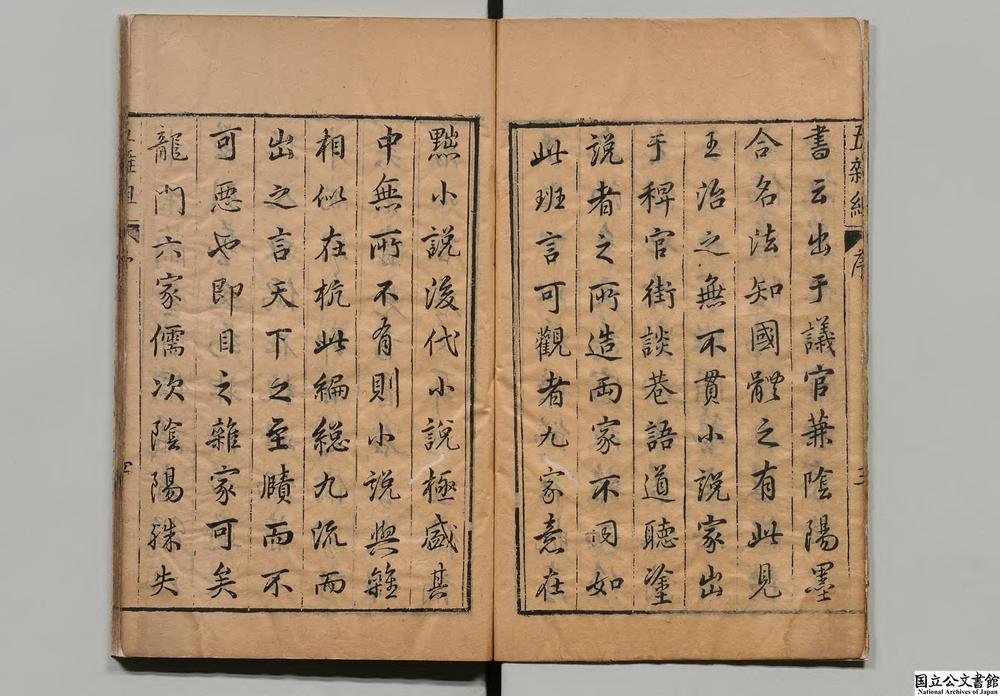 五雜組
序
三
書云出乎議官兼陰陽墨
合名法知國體之有此見
王治之無不貫小說家出
乎稗官街談巷語道聽塗
說者之所造兩家不同如
此班言可觀者九家意在
黜小說後代小說極盛其
中無所不有則小說與雜
相似在杭此編總九流而
出之言天下之至賾而不
可惡也即目之雜家可矣
龍門六家儒次陰陽殊失
国立公文書館
National Archives of Japan